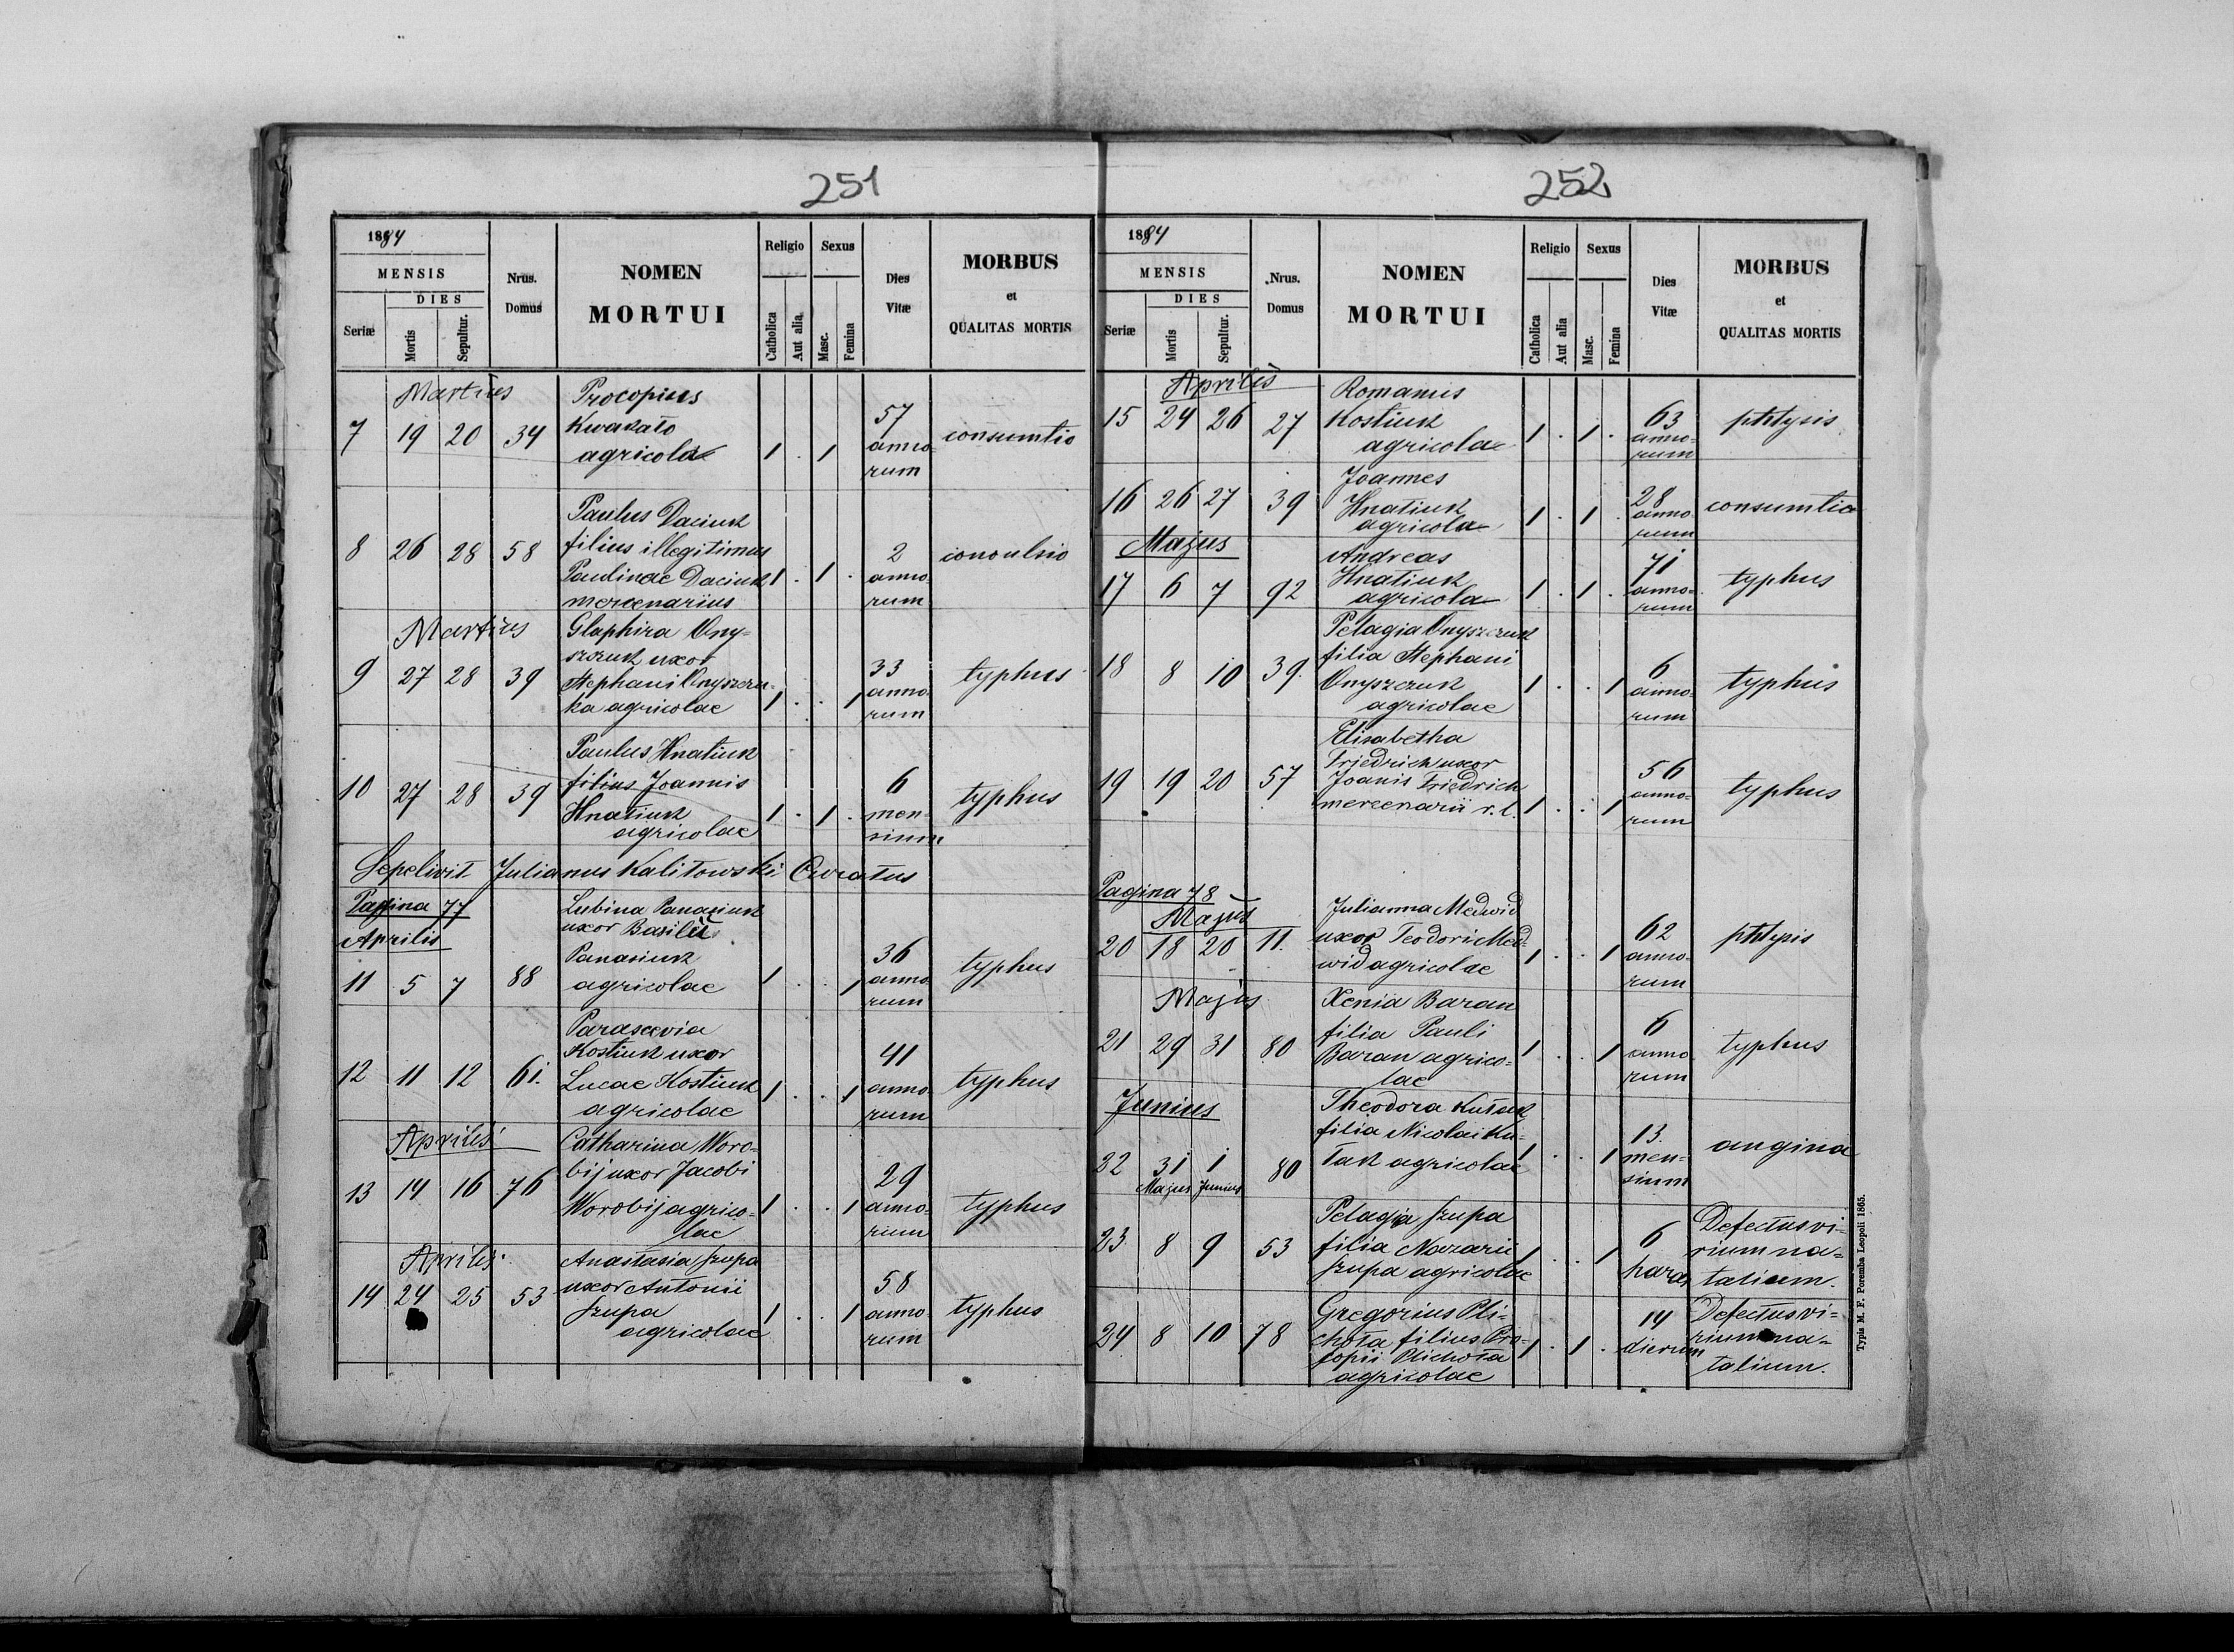 251
1884
MENSIS
DIES
Seriæ
Mortis
Sepultur.
Nrus.
Domus
NOMEN
MORTUI
Religio
Catholica
Aut alia
Sexus
Masc.
Femina
Dies
Vitæ
MORBUS
et
QUALITAS MORTIS
Martius Procopius
7 19 20 34 Kwakało
agricola 1 . 1
57
anno-
rum
consumtio
Paulus Daciuk
8 26 28 58 filius illegitimus
Paulinae Daciuk 1 . 1 .
mercenarius
2
anno-
rum
convulsio
Martius Glaphira Ony-
szczuk uxor
9 27 28 39 Stephani Onyszczu-
ka agricolae 1 . . 1
33
anno-
rum
typhus
Paulus Hnatiuk
filius Joannis
10 27 28 39 Hnatiuk 1 . 1 .
agricolae
6
men-
sium
typhus
Sepelivit Julianus Kalitowski Curatus
Pagina 77
Aprilis
Lubina Panasiuk
uxor Basilii
Panasiuk
11 5 7 88 agricolae 1 . . 1
36
anno-
rum
typhus
Parascevia
Kostiuk uxor
12 11 12 61. Lucae Kostiuk 1 . . 1
agricolae
41
anno-
rum
typhus
Aprilis Catharina Woro-
bij uxor Jacobi
13 14 16 76 Worobij agrico- 1 . . 1
lae
29
anno-
rum
typhus
Aprilis Anastasia Szupa
14 24 25 53 uxor Antonii
Szupa 1 . . 1
agricolae
58
anno-
rum
typhus
252
1884
MENSIS
DIES
Seriæ
Mortis
Sepultur.
Nrus.
Domus
NOMEN
MORTUI
Religio
Catholica
Aut alia
Sexus
Masc.
Femina
Dies
Vitæ
MORBUS
et
QUALITAS MORTIS
Aprilis Romanus
15 24 26 27 Kostiuk
agricola 1 . 1 .
63
anno-
rum
phtysis
Joannes
16 26 27 39 Hnatiuk
agricola 1 . 1 .
28
anno
rum
consumtio
Majus Andreas
17 6 7 92 Hnatiuk
agricola 1 . 1 .
71
anno-
rum
typhus
Pelagia Onyszczuk
18 8 10 39. filia Stephani
Onyszczuk 1 . . 1
agricolae
6
anno-
rum
typhus
Elisabetha
Friedrich uxor
19 19 20 57 Joanis Friedrich
mercenarii r. l. 1 . . 1
56
anno-
rum
typhus
Pagina 78
Majus Julianna Medwid
20 18 20 11. uxor Teodori Med-
wid agricolae 1 . . 1
62
anno-
rum
phtysis
Majus Xenia Baran
filia Pauli
21 29 31 80 Baran agrico- 1 . . 1
lae
6
anno
rum
typhus
Junius Theodora Kułak
filia Nicolai Ku-
22 31 1 80 łak agricolae 1 . . 1
Majus Junius
13.
men-
sium
angina
Pelagia Szupa
23 8 9 53 filia Nazarii
Szupa agricolae 1 . . 1
6
horar
Defectus vi-
rium na-
talium.
Gregorius Pli-
24 8 10 78 chota filius Pro-
copii Plichota 1 . 1 .
agricolae
14
dierum
Defectus vi-
rium na-
talium.
Typis M. F. Poremba Leopoli 1865.